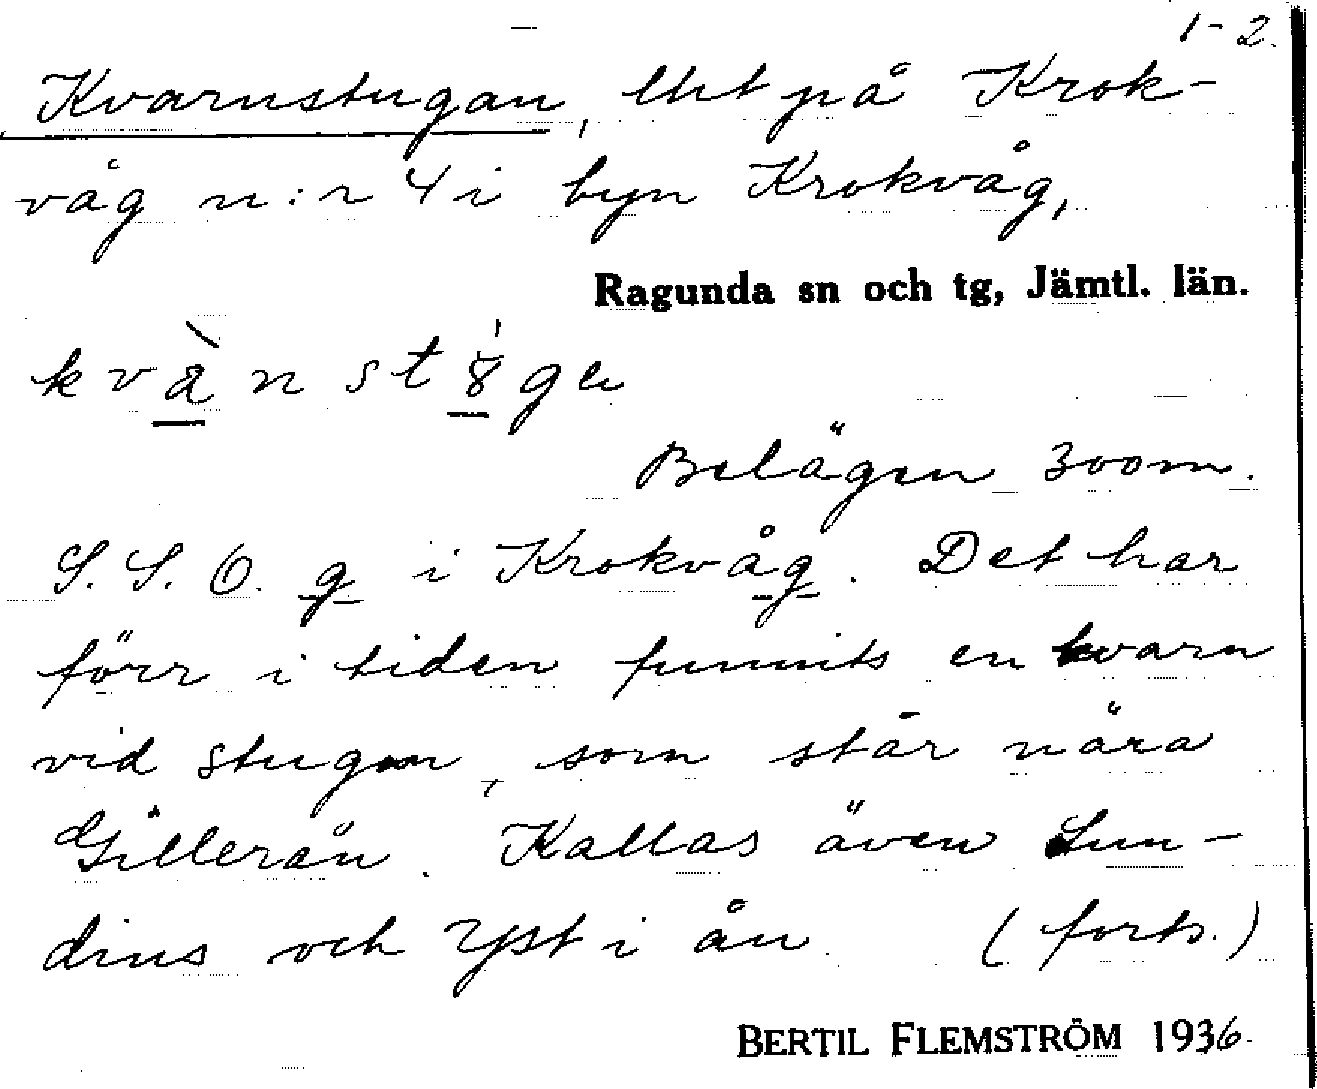 1-2.
Kvarnstugan, lht på Krok-
våg n:r 4 i byn Krokvåg,
Ragunda sn och tg, Jämtl. län.
Belägen 300 m.
S. S. O. g i Krokvåg. Det har
förr i tiden funnits en kvarn
vid stugan, som står nära
Gillerån. Kallas även Lun-
dins och Yst i ån. (forts.)
BERTIL FLEMSTRÖM 1936.